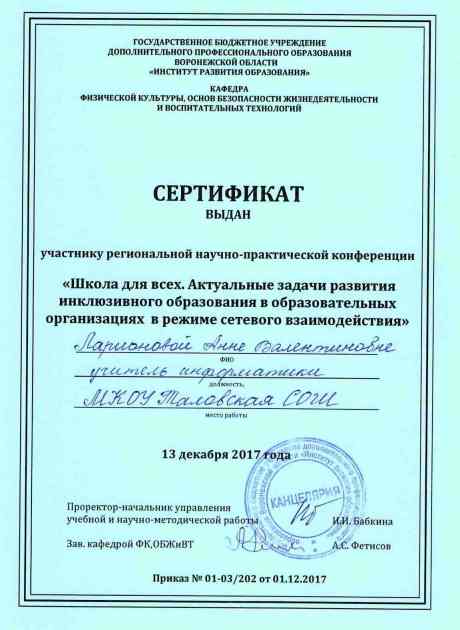 ГОСУДАРСТВЕННОЕ БЮДЖЕТНОЕ УЧРЕЖДЕНИЕ
ДОПОЛНИТЕЛЬНОГО ПРОФЕССИОНАЛЬНОГО ОБРАЗОВАНИЯ
ВОРОНЕЖСКОЙ ОБЛАСТИ
«ИНСТИТУТ РАЗВИТИЯ ОБРАЗОВАНИЯ»
КАФЕДРА
ФИЗИЧЕСКОЙ КУЛЬТУРЫ, ОСНОВ БЕЗОПАСНОСТИ ЖИЗНЕДЕЯТЕЛЬНОСТИ
И ВОСПИТАТЕЛЬНЫХ ТЕХНОЛОГИЙ
СЕРТИФИКАТ
ВЫДАН
участнику региональной научно-практической конференции
«Школа для всех. Актуальные задачи развития
инклюзивного образования в образовательных
организациях в режиме сетевого взаимодействия»
Ларионовой Анне Валентиновне
ФИО
учитель информатики
должность,
МКОУ Таловская СОШ
место работы
13 декабря 2017 года
КАНЦЕЛЯРИЯ
Проректор-начальник управления
учебной и научно-методической работы И.И. Бабкина
Зав. кафедрой ФК,ОБЖиВТ А.С. Фетисов
Приказ № 01-03/202 от 01.12.2017